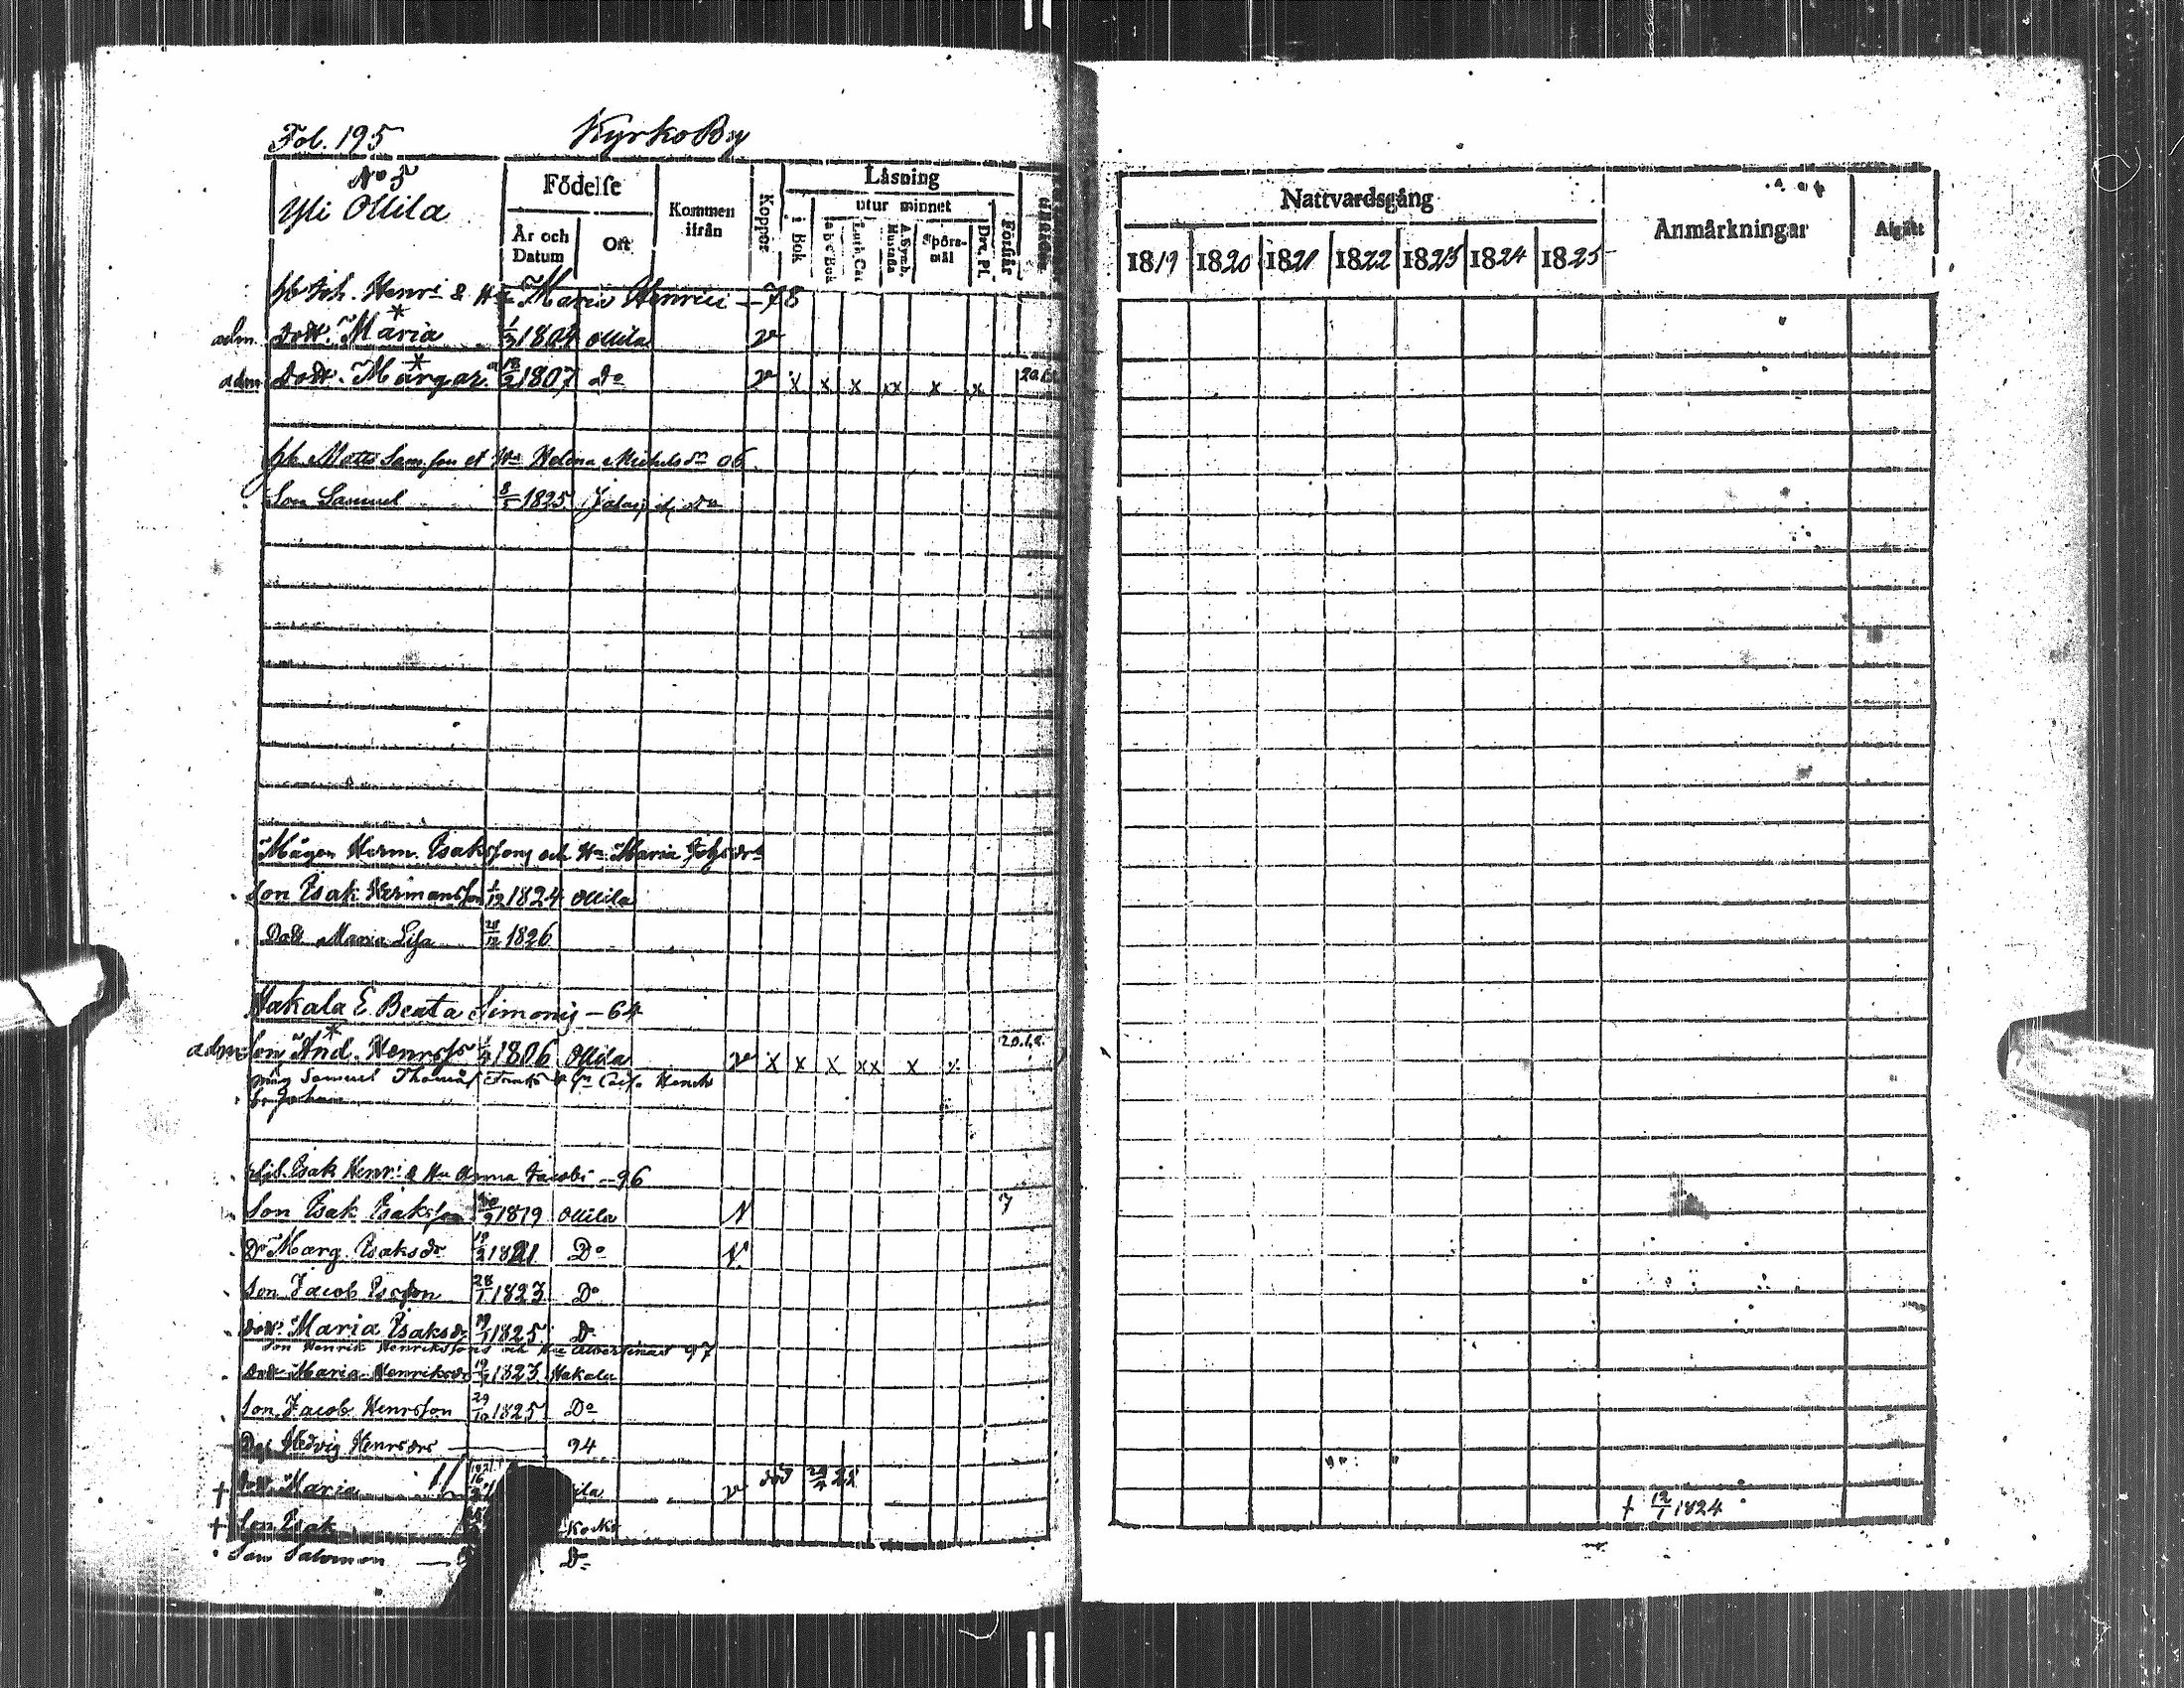 Fol. 195 KyrkoBy
No 5
Yli Ollila
Födelse
År och Datum
Ort
Kommen ifrån
Koppor
Läsning
i Bok
utur minnet
a b c Bok
Luth. Cat
A. Symb. Hustafla
Spörsmål
Dav. Ps.
Förstår
Joh. Henr. & Maria Henrici — 78
adm. Dott. Maria 1804 Ollila v
adm Dott. Margar. 18/2 1807 Do v x x x xx x x
Matts Samsson et Hu Helena Michelsdr 06
Son Samuel 8/5 1825
Mågen Herm. Isakssons och Hu Maria Johsdr
Son Isak Hermansson 1824 Ollila
Dott Maria Lisa 1826
Hakala E. Beata Simonis — 64
adm Son And. Henrsson 1806 Ollila v x x x xx x x
måg Samuel Thomas
Johan
Isak Henr. & Hu Anna Jacobi — 96
Son Isak Isaksson 1819 Ollila N 7
Dr Marg. Isaksdr 19/2 1821 Do N
Son Jacob Isacsson 28/1 1823 Do
dott. Maria Isaksdr 1825 D
Son Henrik Henrikssons och Hu 97
dott Maria Henriksdr 1823 Hakala
Son Jacob Henrsson 29/10 1825 Do
Hedvig Henrsdr 94
† Dott. Maria v död 22
† Son Isak
Son Salomon — Do
Nattvardsgång
1819 1820 1821 1822 1823 1824 1825
Anmärkningar
Afgått
† 12/1 1824